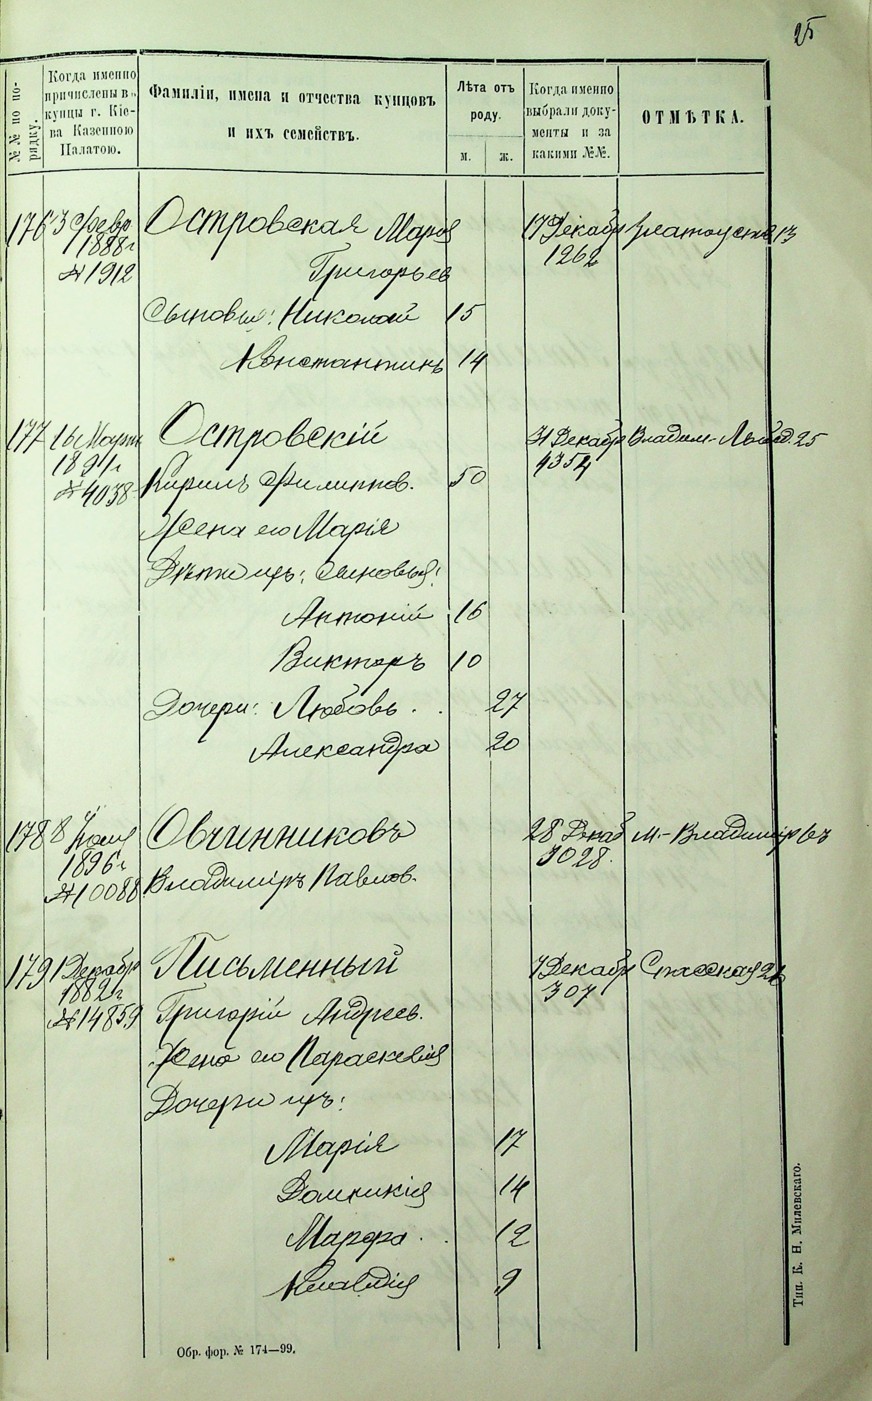 25
№№ по по-
рядку.
Когда именно
причислены въ
купцы г. Кіе-
ва Казенною
Палатою.
Фамиліи, имена и отчества купцовъ
и ихъ семействъ.
Лѣта отъ
роду.
м. ж.
Когда именно
выбрали доку-
менты и за
какими №№.
ОТМѢТКА.
176 3 Февр Островская Марія 17 Декабр Златоустов 13
1888 г Григорьев 1262
№ 1912
Сыновья: Николай 15
Константинъ 14
177 16 Марта Островскій Декабр Владим.-Лыбед. 25
1891 г 4354
№ 4038 Кирилъ Филиппов. 50
Жена его Марія
Дѣти ихъ: сыновья:
Антоній 16
Викторъ 10
Дочери: Любовь . . 27
Александра 20
178 8 Овчинниковъ 28 Декаб М.-Владимір
1896 г 3028.
№ 10088 Владиміръ Павлов.
179 1 Декабр Письменный Декабр Спасская
1882 г 307
№ 14859 Григорій Андреев.
Жена его Параскевія
Дочери ихъ:
Марія 17
Домникія 14
Марфа . . 12
Клавдія 9
Обр. фор. № 174—99.
Тип. К. Н. Милевскаго.